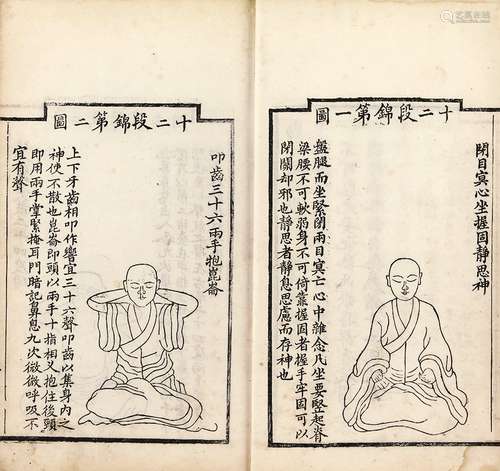 十二段錦第一圖
閉目冥心坐握固靜思神
盤腿而坐緊閉兩目冥亡心中雜念凡坐要豎起脊
梁腰不可軟弱身不可倚靠握固者握手牢固可以
閉關却邪也靜思者靜息思慮而存神也
十二段錦第二圖
叩齒三十六兩手抱崑崙
上下牙齒相叩作響宜三十六聲叩齒以集身內之
神使不散也崑崙即頭以兩手十指相叉抱住後頭
即用兩手掌緊掩耳門暗記鼻息九次微微呼吸不
宜有聲